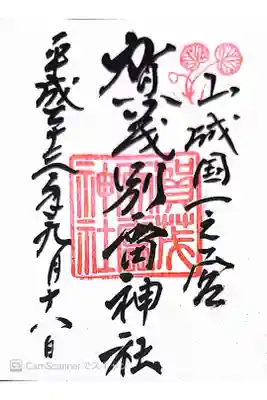 山城国一之宮
賀茂別雷神社
平成二十三年九月十八日
賀茂
別雷
神社
CS CamScanner でス